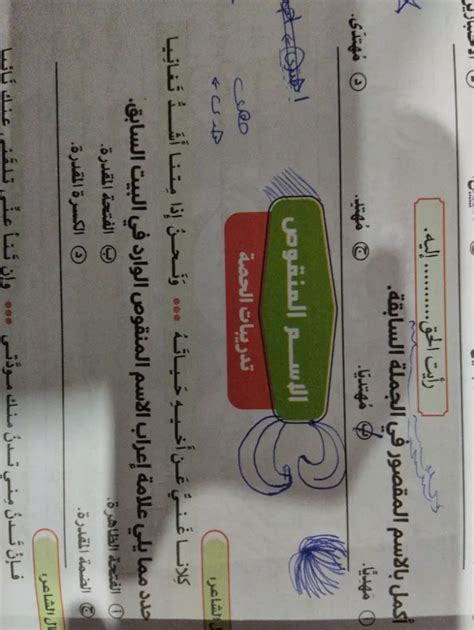 رأيت الحق .......... إليه.
أكمل بالاسم المقصور في الجملة السابقة.
أ مُهديًا. ب مُهتديًا. ج مُهتدٍ. د مُهتدًى.
الاسم المنقوص
تدريبات الحصة
قال الشاعر:
كِلانا غَنيٌّ عَن أخيهِ حَياتَهُ *** وَنَحنُ إذا مِتنا أشَدُّ تَغانِيا
حدد مما يلي علامة إعراب الاسم المنقوص الوارد في البيت السابق.
أ الفتحة الظاهرة. ب الفتحة المقدرة.
ج الضمة المقدرة. د الكسرة المقدرة.
قال الشاعر:
فإنْ تَدنُ مِني تدنُ منك مودّتي *** وإن تَنأَ عنّي تلقَني عنك نائيا